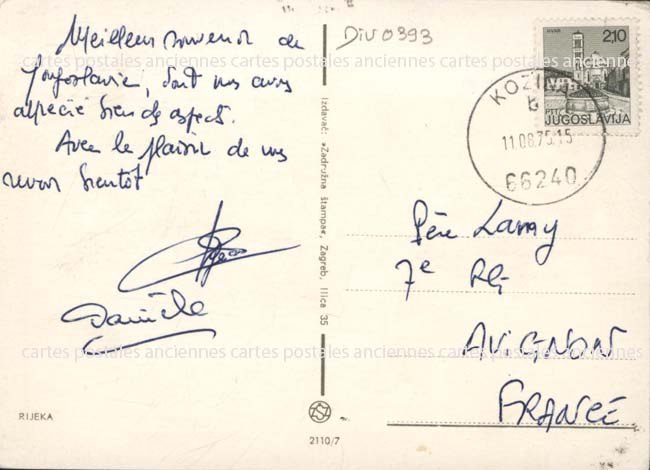 Meilleur souvenir de
Yougoslavie, dont nous avons
apprécié bien des aspects.
Avec le plaisir de vous
revoir bientôt
Danièle
RIJEKA
Izdavač: »Zadružna štampa«, Zagreb, Ilica 35
2110/7
Div 0393
HVAR
2,10
PTT
JUGOSLAVIJA
b
11.08.75.15
66240
Père Lamy
7e RG
AVIGNON
FRANCE
cartes postales anciennes cartes postales anciennes cartes postales anciennes
cartes postales anciennes cartes postales anciennes cartes postales anciennes